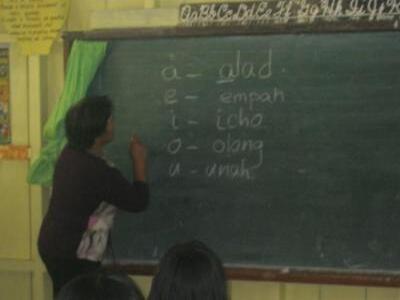 Aa Bb Cc Dd Ee Ff Gg Hh Ii Jj K
a - alad
e - empah
i - icho
o - olang
u - unah